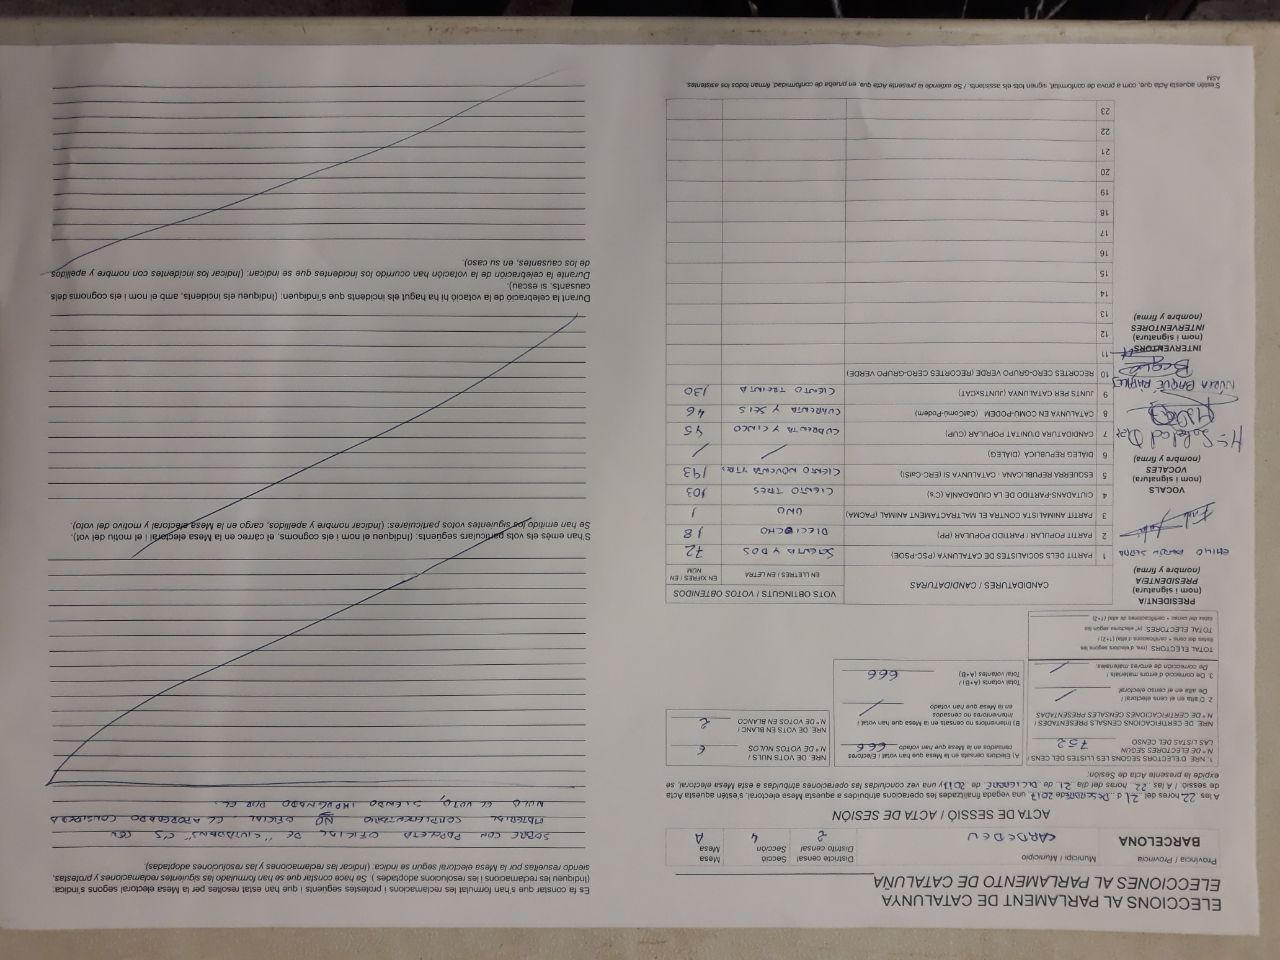 ELECCIONS AL PARLAMENT DE CATALUNYA
ELECCIONES AL PARLAMENTO DE CATALUÑA
Província / Provincia
BARCELONA
Municipi / Municipio
CARDEDEU
Districte censal
Distrito censal
2
Secció
Sección
4
Mesa
Mesa
A
ACTA DE SESSIÓ / ACTA DE SESIÓN
A les 22 hores del 21 d. DESEMBRE de 2017, una vegada finalitzades les operacions atribuïdes a aquesta Mesa electoral, s'estén aquesta Acta
de sessió / A las 22 horas del día 21 de DICIEMBRE de 2017 y una vez concluidas las operaciones atribuidas a esta Mesa electoral, se
expide la presente Acta de Sesión:
1. NRE. D'ELECTORS SEGONS LES LLISTES DEL CENS /
Nº DE ELECTORES SEGÚN
LAS LISTAS DEL CENSO 752
NRE. DE CERTIFICACIONS CENSALS PRESENTADES /
Nº DE CERTIFICACIONES CENSALES PRESENTADAS
2. D'alta en el cens electoral /
De alta en el censo electoral: /
3. De correcció d'errors materials /
De corrección de errores materiales: /
TOTAL ELECTORS (nre. d'electors segons les
llistes del cens + certificacions d'alta) (1+2) /
TOTAL ELECTORES (nº electores según las
listas del censo + certificaciones de alta) (1+2)
A) Electors censats en la Mesa que han votat / Electores
censados en la Mesa que han votado 666
B) Interventors no censats en la Mesa que han votat /
Interventores no censados
en la Mesa que han votado /
Total votants (A+B) /
Total votantes (A+B) 666
NRE. DE VOTS NULS /
Nº DE VOTOS NULOS 6
NRE. DE VOTS EN BLANC /
Nº DE VOTOS EN BLANCO 2
CANDIDATURES / CANDIDATURAS
VOTS OBTINGUTS / VOTOS OBTENIDOS
EN LLETRES / EN LETRA
EN XIFRES / EN NÚM
1 PARTIT DELS SOCIALISTES DE CATALUNYA (PSC-PSOE) SETENTA Y DOS 72
2 PARTIT POPULAR / PARTIDO POPULAR (PP) DIECIOCHO 18
3 PARTIT ANIMALISTA CONTRA EL MALTRACTAMENT ANIMAL (PACMA) UNO 1
4 CIUTADANS-PARTIDO DE LA CIUDADANÍA (C's) CIENTO TRES 103
5 ESQUERRA REPUBLICANA - CATALUNYA SÍ (ERC-CatSí) CIENTO NOVENTA Y TRES 193
6 DIÀLEG REPÚBLICA (DIÀLEG) / /
7 CANDIDATURA D'UNITAT POPULAR (CUP) CUARENTA Y CINCO 45
8 CATALUNYA EN COMÚ-PODEM (CatComú-Podem) CUARENTA Y SEIS 46
9 JUNTS PER CATALUNYA (JUNTSxCAT) CIENTO TREINTA 130
10 RECORTES CERO-GRUPO VERDE (RECORTES CERO-GRUPO VERDE)
11
12
13
14
15
16
17
18
19
20
21
22
23
PRESIDENT/A
(nom i signatura)
PRESIDENTE/A
(nombre y firma)
VOCALS
(nom i signatura)
VOCALES
(nombre y firma)
Mª Soledad
NÚRIA BAQUÉ
INTERVENTORS
(nom i signatura)
INTERVENTORES
(nombre y firma)
S'estén aquesta Acta que, com a prova de conformitat, signen tots els assistents. / Se extiende la presente Acta que, en prueba de conformidad, firman todos los asistentes.
Es fa constar que s'han formulat les reclamacions i protestes següents i que han estat resoltes per la Mesa electoral segons s'indica:
(Indiqueu les reclamacions i les resolucions adoptades). Se hace constar que se han formulado las siguientes reclamaciones y protestas,
siendo resueltas por la Mesa electoral según se indica: (Indicar las reclamaciones y las resoluciones adoptadas).
SOBRE CON PAPELETA OFICIAL DE "CIUTADANS" C'S CON
MATERIAL COMPLEMENTARIO NO OFICIAL. EL APODERADO CONSIDERA
NULO EL VOTO, SIENDO IMPUGNADO POR EL.
S'han emès els vots particulars següents: (Indiqueu el nom i els cognoms, el càrrec en la Mesa electoral i el motiu del vot).
Se han emitido los siguientes votos particulares: (Indicar nombre y apellidos, cargo en la Mesa electoral y motivo del voto).
Durant la celebració de la votació hi ha hagut els incidents que s'indiquen: (Indiqueu els incidents, amb el nom i els cognoms dels
causants, si escau).
Durante la celebración de la votación han ocurrido los incidentes que se indican: (Indicar los incidentes con nombre y apellidos
de los causantes, en su caso).